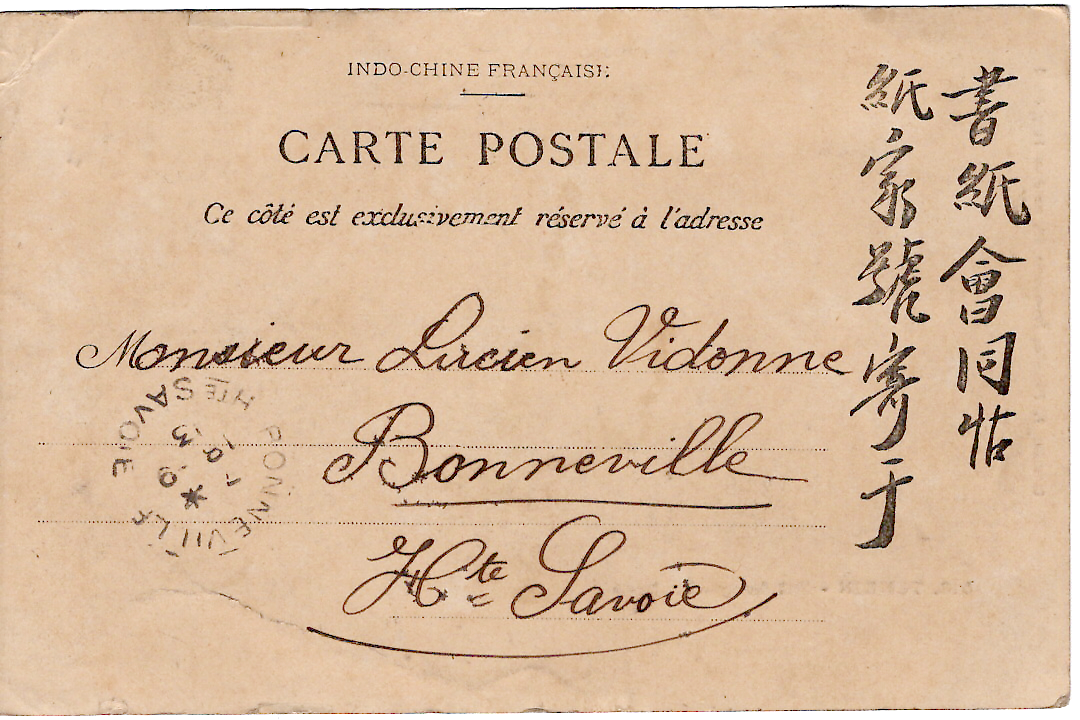 INDO-CHINE FRANÇAISE
CARTE POSTALE
Ce côté est exclusivement réservé à l'adresse
Monsieur Lucien Vidonne
Bonneville
Hte Savoie
書紙會同帖
紙家號寄于
BONNEVILLE
Hte SAVOIE